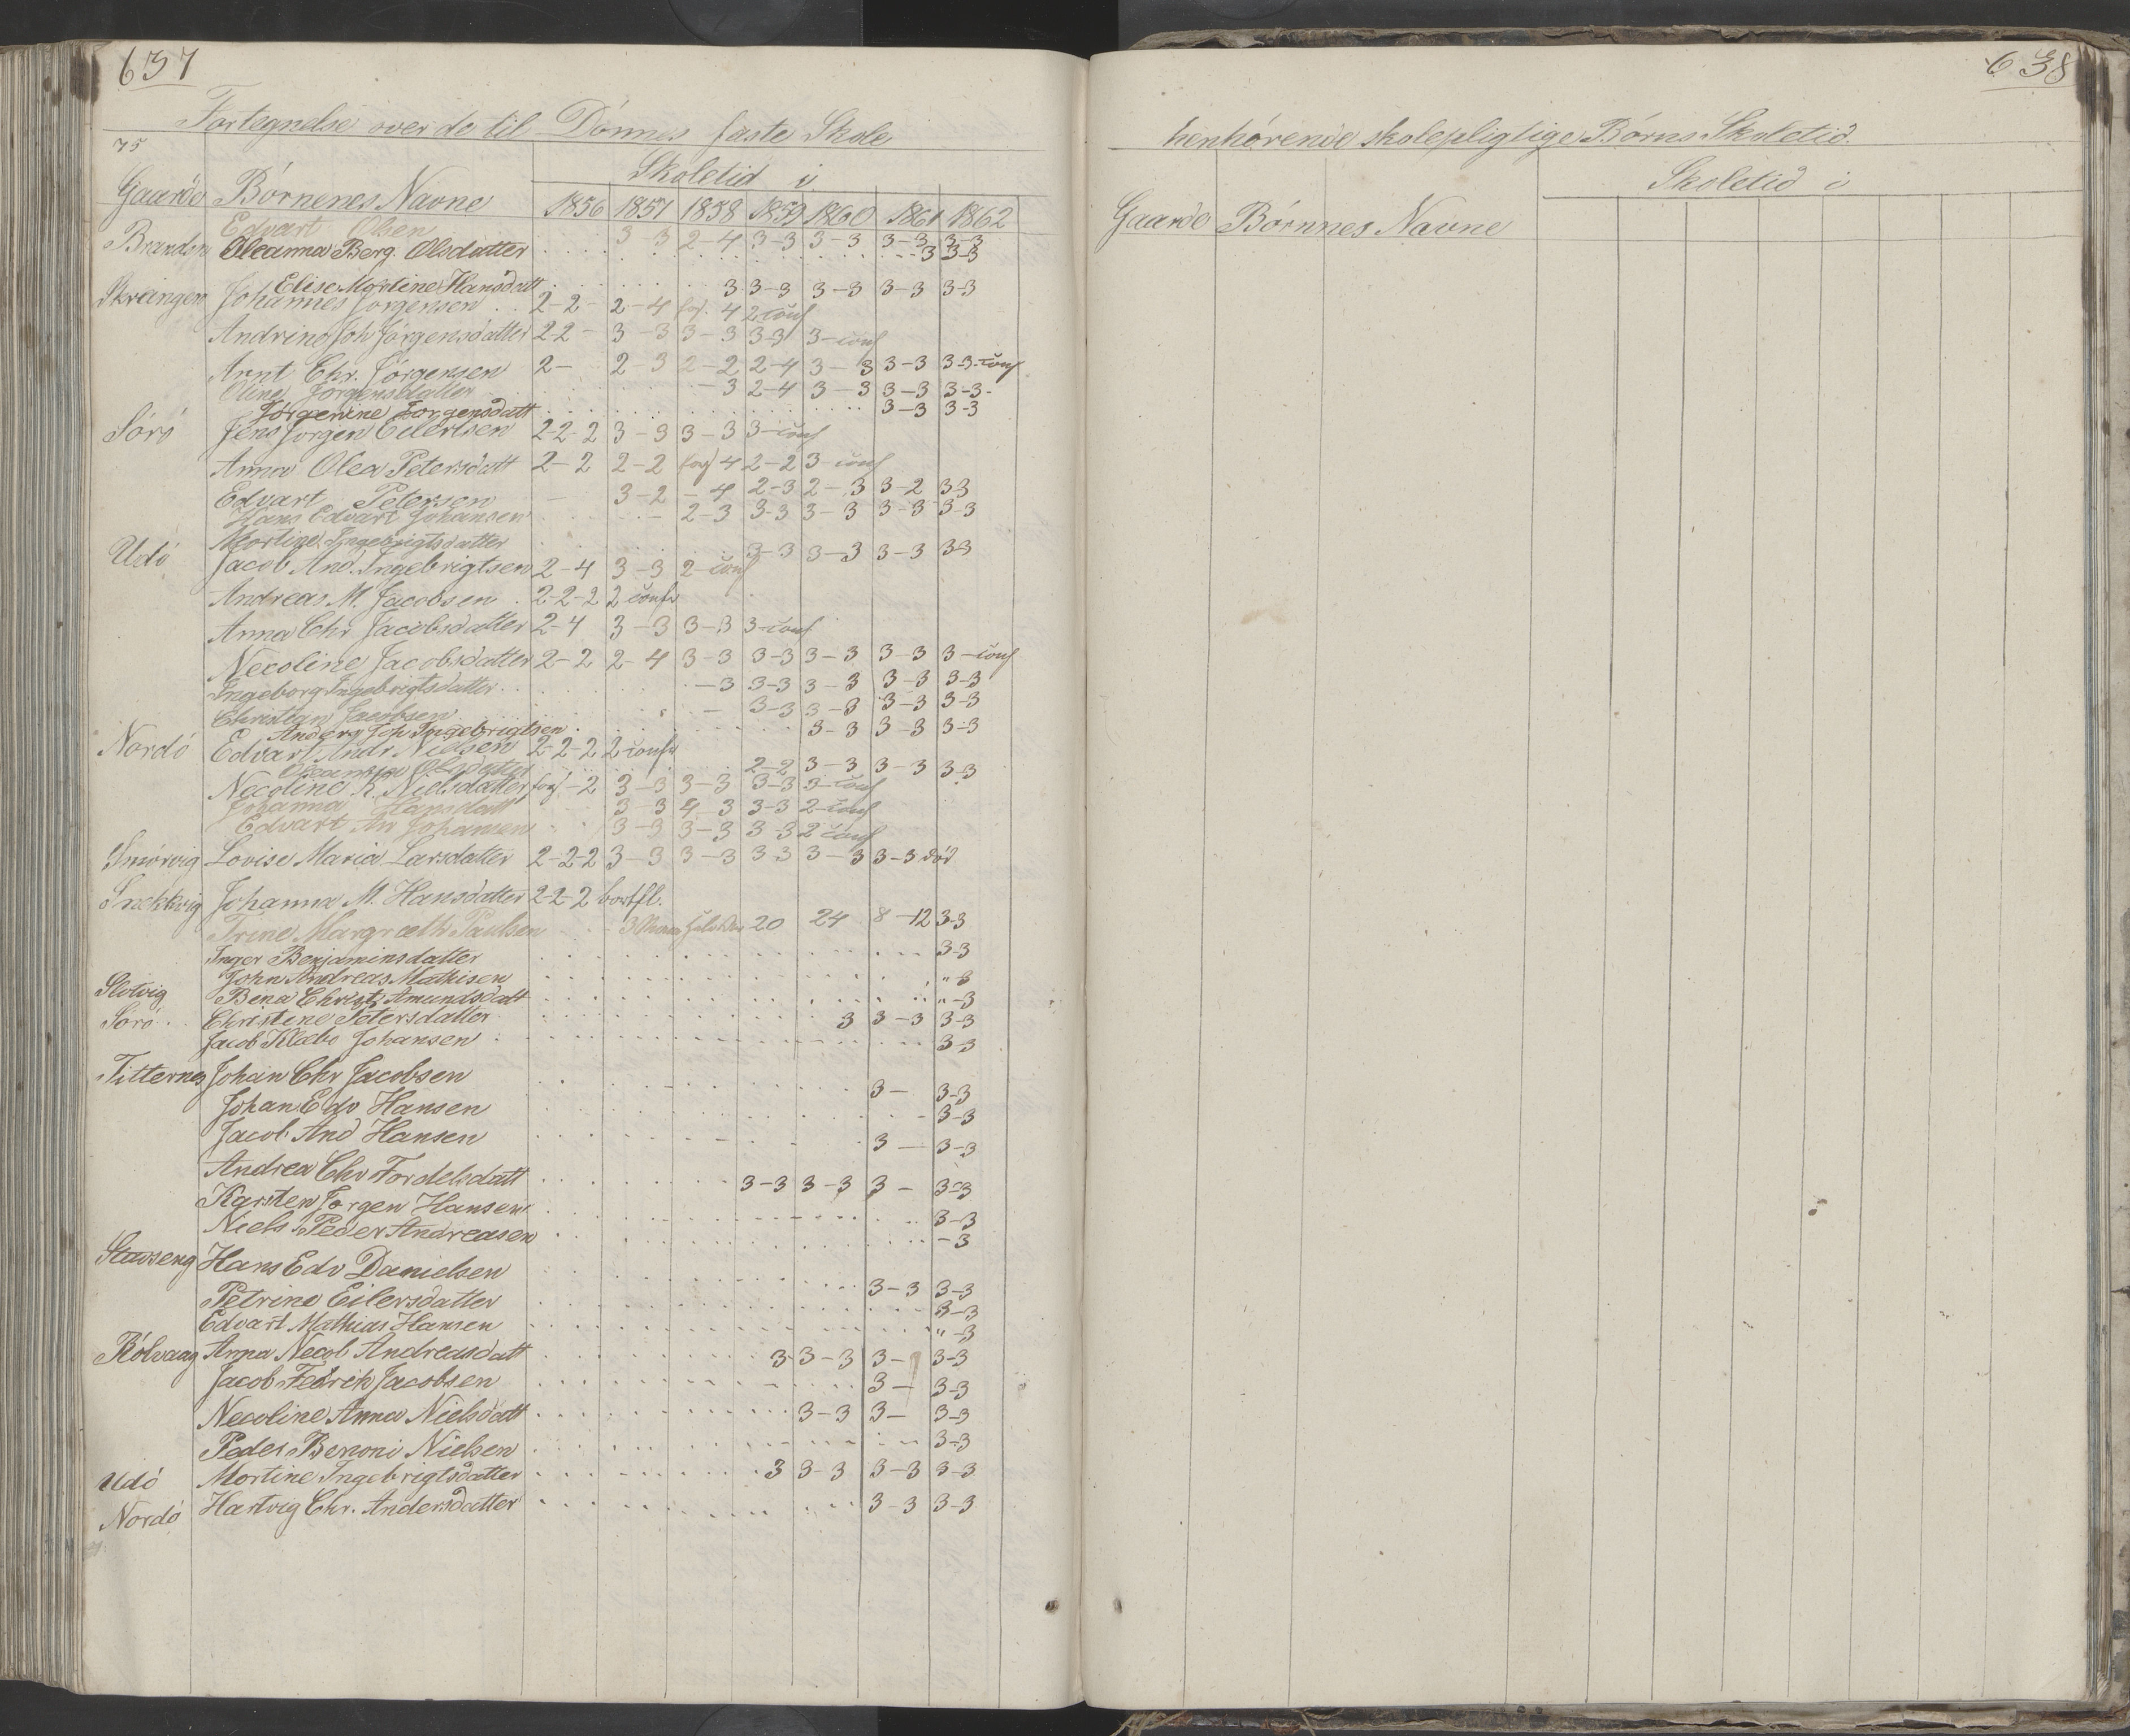 637
Fortegnelse over de til Dönnes faste Skole
75
Skoletid i
Gaarde Börnenes Navne 1856 1857 1858 1859 1860 1861 1862
Edvart Olsen 3-3 2-4 3-3 3-3 3-3 3-3
Brandsn Oleanna Berg. Olsdatter 3 3-3
Elise Martine Hansdatt 3 3-3 3-3 3-3 3-3
Skeingen Johannes Jörgensen 2-2- 2-4 forf. 4 2 conf
Andrine Joh Jörgensdatter 2-2- 3-3 3-3 3-3 3-conf
Arnt Chr. Jörgensen 2- 2-3 2-2 2-4 3-3 3-3 3-3-conf
Oline Jörgensdatter -3 2-4 3-3 3-3 3-3-
Jörgenine Jorgensdatt 3-3 3-3
Sörö Jens Jörgen Eilertsen 2-2-2 3-3 3-3 3-conf
Anna Olea Petersdatt 2-2 2-2 forf 4 2-2 3-conf
Edvart Petersen - 3-2 -4 2-3 2-3 3-2 3-3
Hans Edvart Johansen - 2-3 3-3 3-3 3-3 3-3
Martine Ingebrigtsdatter 3-3 3-3 3-3 3-3
Udö Jacob And. Ingebrigtsen 2-4 3-3 2-conf
Andreas M. Jacobsen 2-2-2 2 confr
Anna Chr Jacobsdatter 2-4 3-3 3-3 3-conf
Necoline Jacobsdatter 2-2 2-4 3-3 3-3 3-3 3-3 3-conf
Ingeborg Ingebrigtsdatter -3 3-3 3-3 3-3 3-3
Christian Jacobsen - 3-3 3-3 3-3 3-3
Anders Joh Ingebrigtsen 3-3 3-3 3-3
Nordö Edvart Andr Nielsen 2-2-2 2 confr
Oleanna Olsdatter 2-2 3-3 3-3 3-3
Necoline K. Nielsdatter forf-2 3-3 3-3 3-3 3-conf
Johanna Hansdatt 3-3 4-3 3-3 2-conf
Edvart An Johansen 3-3 3-3 3-3 2 conf
Smörvig Lovise Maria Larsdatter 2-2-2 3-3 3-3 3-3 3-3 3-3 död
Snekkvig Johanna M. Hansdatter 2-2-2 bortfl.
Trine Margræthe Paulsen 3 20 24 8-12 3-3
Inger Benjaminsdatter 3-3
John Andreas Mathisen "-3
Slotvig Bena Christ. Amundsdatt "-3
Sörö Christine Petersdatter 3 3-3 3-3
Jacob Klæbo Johansen 3-3
Titternes Johan Chr Jacobsen 3- 3-3
Johan Edv Hansen 3-3
Jacob And Hansen 3- 3-3
Andrea Chr Tordelsdatt 3-3 3-3 3- 3-3
Karsten Jorgen Hansen 3-3
Niels Peder Andreasen -3
Stavseng Hans Edv Danielsen 3-3 3-3
Petrine Eilersdatter 3-3
Edvart Mathias Hansen "-3
Rölvaag Anna Necol Andreasdatt 3 3-3 3- 3-3
Jacob Fedrik Jacobsen 3- 3-3
Necoline Anna Nielsdatt 3-3 3- 3-3
Peder Benoni Nielsen 3-3
Udö Martine Ingebrigtsdatter 3 3-3 3-3 3-3
Nordö Hartvig Chr. Andersdatter 3-3 3-3
638
henhörende skolepligtige Börns Skoletid.
Skoletid i
Gaarde Börnnes Navne